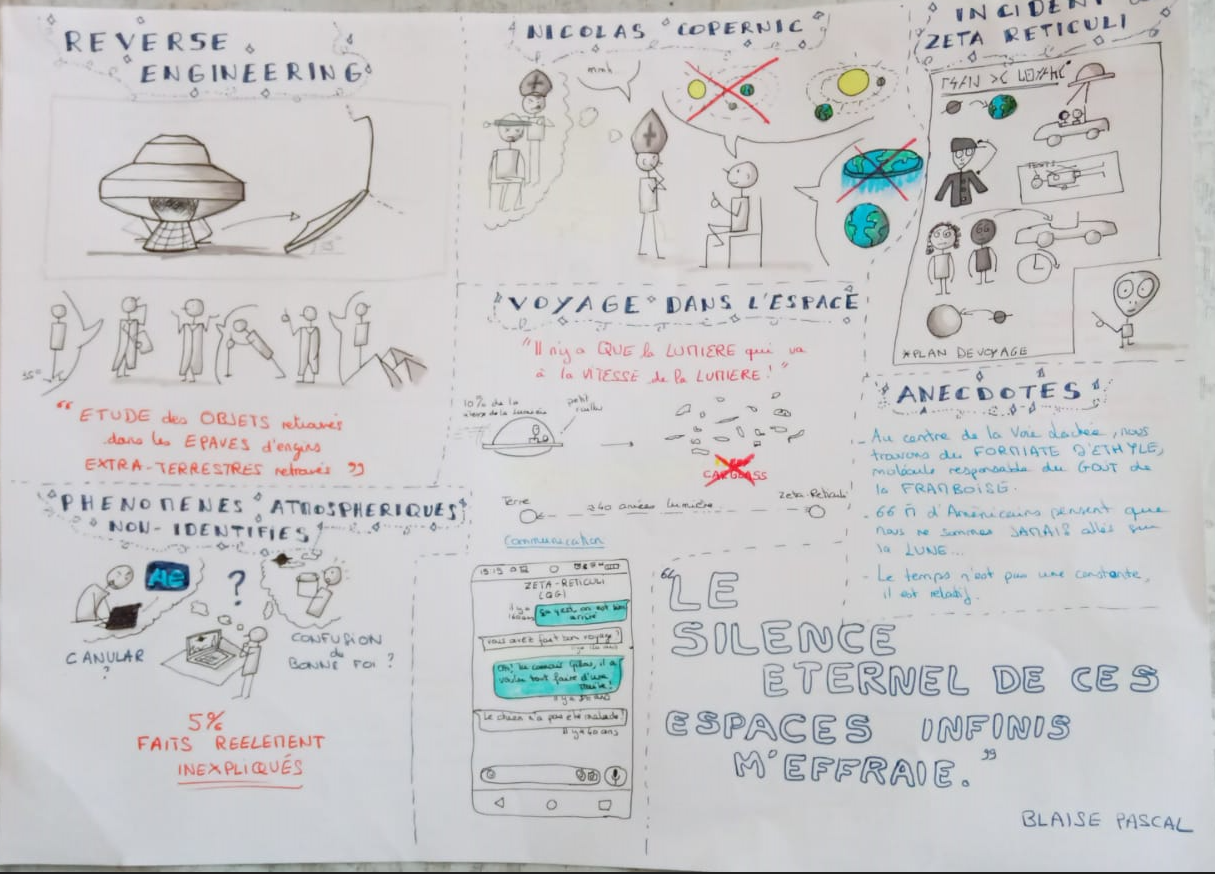 REVERSE
ENGINEERING
55°
" ETUDE des OBJETS retrouvés
dans les EPAVES d'engins
EXTRA-TERRESTRES retrouvés "
PHENOMENES ATMOSPHERIQUES
NON-IDENTIFIES
AE
?
CANULAR
?
CONFUSION
de
BONNE FOI ?
5%
FAITS REELEMENT
INEXPLIQUÉS
NICOLAS COPERNIC
mmh
VOYAGE DANS L'ESPACE
"Il n'y a QUE la LUMIERE qui va
à la VITESSE de la LUMIERE ! "
10% de la
vitesse de la lumière
petit
caillou
CARGLASS
Terre
Zeta-Reticuli
années lumière
Communication
ZETA-RETICULI
(QG)
il y a
ça y est on est bien
arrivé
vous avez fait bon voyage ?
il a
voulu tout faire d'une
traite !
il y a
Le chien n'a pas été malade ?
il y a 40 ans
INCIDENT
ZETA RETICULI
TESTS
*PLAN DE VOYAGE
ANECDOTES
- Au centre de la Voie Lactée, nous
trouvons du FORMIATE D'ETHYLE,
molécule responsable du GOUT de
la FRAMBOISE.
- 66 M d'Américains pensent que
nous ne sommes JAMAIS allés sur
la LUNE...
- Le temps n'est pas une constante,
il est relatif.
"LE
SILENCE
ETERNEL DE CES
ESPACES INFINIS
M'EFFRAIE."
BLAISE PASCAL